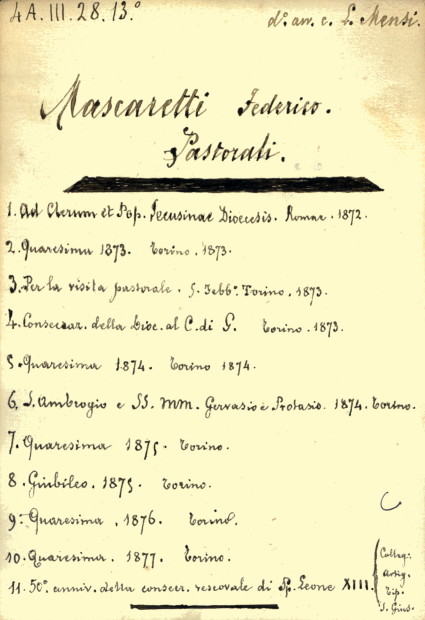 4A.III.28.13.º
d.º avv. c. L. Mensi.
Mascaretti Federico.
Pastorali.
1. Ad Clerum et Pop. Secusinae Dioecesis. Romae. 1872.
2. Quaresima 1873. Torino. 1873.
3. Per la visita pastorale. 5. Febb.º Torino. 1873.
4. Consecraz. della Dioc. al C. di G. Torino. 1873.
5. Quaresima 1874. Torino 1874.
6. S. Ambrogio e SS. MM. Gervasio e Protasio. 1874. Torino.
7. Quaresima 1875. Torino.
8. Giubileo. 1875. Torino.
9. Quaresima. 1876. Torino.
10. Quaresima. 1877. Torino.
11. 50.º anniv. della consecr. vescovale di P. Leone XIII.
Colleg.
Artig.
Tip.
S. Gius.